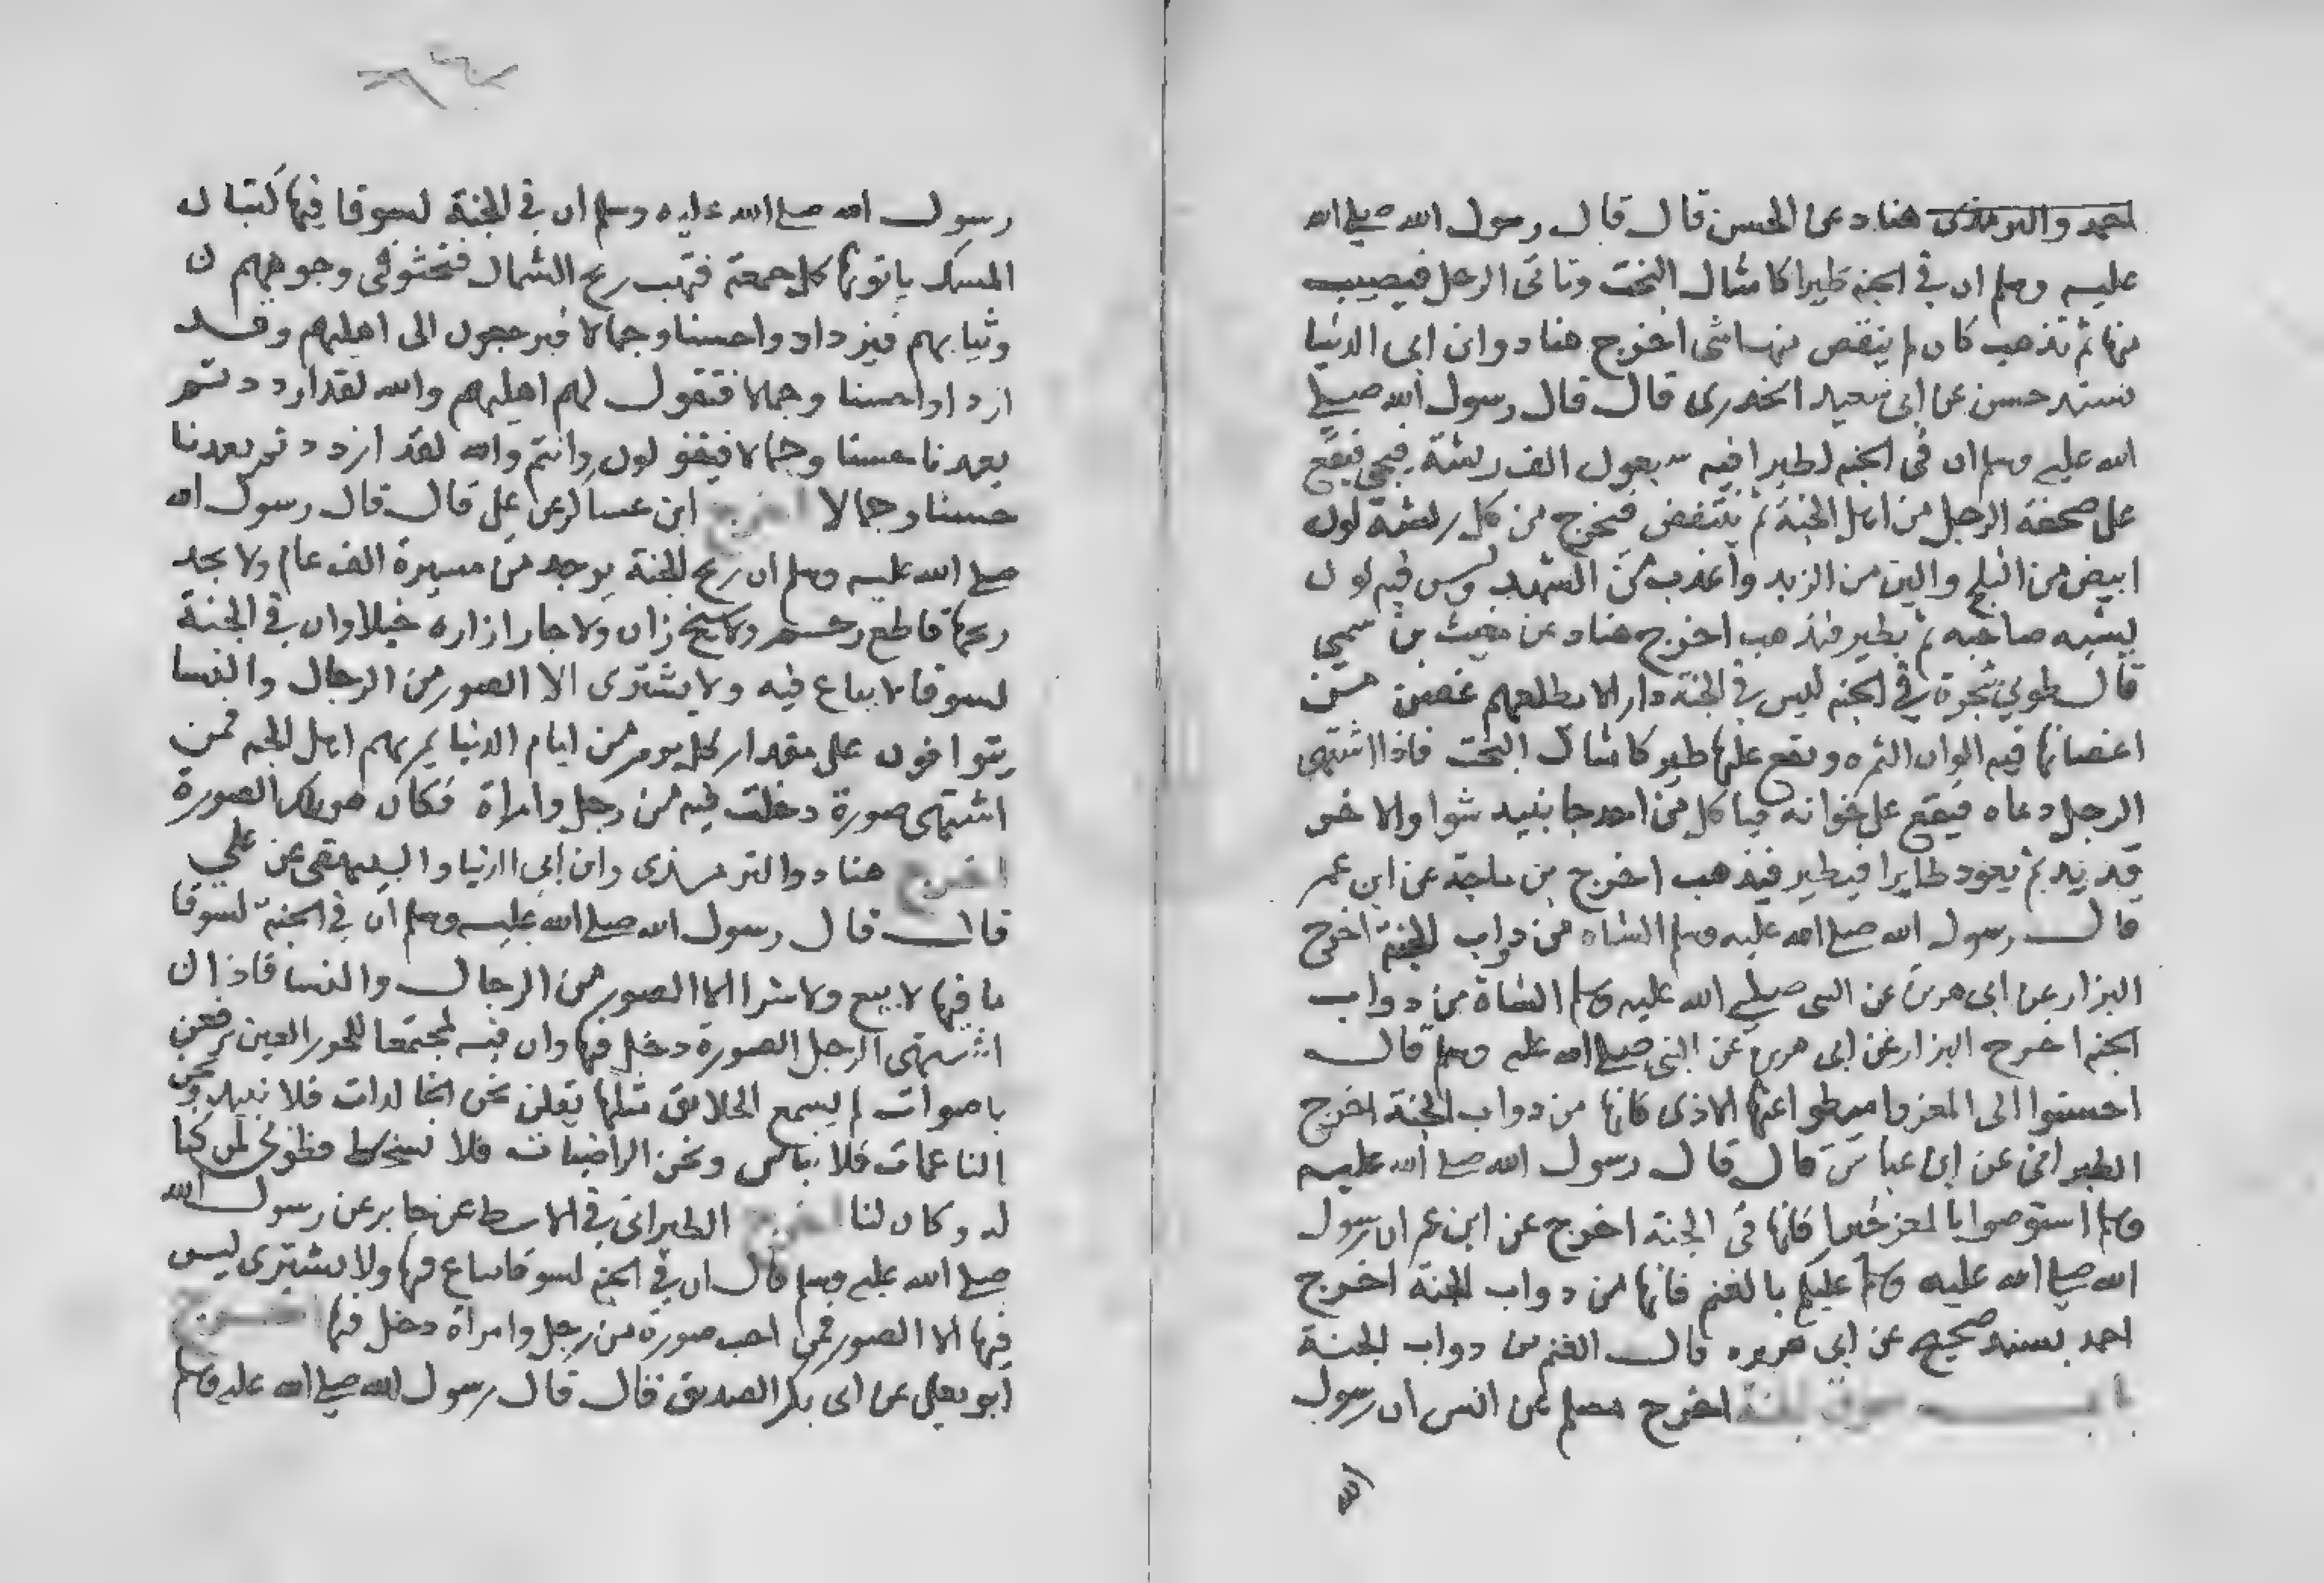 احمد والترمذى هناد عن الحسن قال قال رسول الله صلى الله
عليه وسلم ان في الجنه طيرا كامثال البخت وتاتى الرجل فيصيب
منها ثم تذهب كان لم ينقص منها شى اخرج هناد وابن ابى الدنيا
بسند حسن عن ابى سعيد الخدرى قال قال رسول الله صلى
الله عليه وسلم ان فى الجنه لطيرا فيه سبعون الف ريشة فيجى فيقع
على صحفة الرجل من اهل الجنة ثم ينتفض فيخرج من كل ريشة لون
ابيض من الثلج والين من الزبد واعذب من الشهد وليس فيه لون
يشبه صاحبه ثم يطير فيذهب اخرج هناد عن مغيث بن سمي
قال طوبى شجرة في الجنه ليس في الجنة دار الا يظلهم غصن من
اغصانها فيه الوان الثمره ويقع عليها طير كامثال البخت فاذا اشتهى
الرجل دعاه فيقع على خوانه فياكل من احد جانبيه شوا والاخر
قديد ثم يعود طايرا فيطير فيذهب اخرج بن ماجة عن ابن عمر
قال رسول الله صلى الله عليه وسلم الشاه من دواب الجنة اخرج
البزار عن ابى هريرة عن النبى صلى الله عليه وسلم الشاة من دواب
الجنه اخرج البزار عن ابى هريرة عن النبى صلى الله عليه وسلم قال
احسنوا الى المعز واميطوا عنها الاذى فانها من دواب الجنة اخرج
الطبرانى عن ابن عباس قال قال رسول الله صلى الله عليه
وسلم استوصوا بالمعز خيرا فانها فى الجنة اخرج عن ابن عمر ان رسول
الله صلى الله عليه وسلم عليكم بالغنم فانها من دواب الجنة اخرج
احمد بسند صحيح عن ابى هريره قال الغنم من دواب الجنة
باب سوق الجنة اخرج مسلم عن انس ان رسول
رسول الله صلى الله عليه وسلم ان في الجنة لسوقا فيها كثبان
المسك ياتونها كل جمعة فتهب ريح الشمال فتحثو فى وجوههم
وثيابهم فيزدادوا حسنا وجمالا فيرجعون الى اهليهم وقد
ازدادوا حسنا وجمالا فتقول لهم اهليهم والله لقد ازددتم
بعدنا حسنا وجمالا فيقولون وانتم والله لقد ازددتم بعدنا
حسنا وجمالا اخرج ابن عساكر عن على قال قال رسول الله
صلى الله عليه وسلم ان ريح الجنة يوجد من مسيرة الف عام ولا يجد
ريحها قاطع رحم ولا شيخ زان ولا جار ازاره خيلا وان في الجنة
لسوقا لا يباع فيه ولا يشترى الا الصور من الرجال والنسا
يتوافون على مقدار كل يوم من ايام الدنيا يمر بهم اهل الجنه فمن
اشتهى صورة دخلت فيه من رجل وامراة فكان هو تلك الصورة
اخرج هناد والترمذى وابن ابى الدنيا والبيهقى عن علي
قال قال رسول الله صلى الله عليه وسلم ان في الجنة لسوقا
ما فيها لا بيع ولا شرا الا الصور من الرجال والنسا فاذا ان
اشتهى الرجل الصورة دخل فيها وان فيه لمجتمعا للحور العين يرفعن
باصوات لم يسمع الخلايق مثلها يقلن نحن الخالدات فلا نبيد ونحن
الناعمات فلا نباس ونحن الراضيات فلا نسخط فطوبى لمن كنا
له وكان لنا اخرج الطبرانى في الاوسط عن جابر عن رسول الله
صلى الله عليه وسلم قال ان في الجنه لسوقا يباع فيها ولا يشترى ليس
فيها الا الصور فمن احب صورة من رجل وامراة دخل فيها اخرج
ابو يعلى عن ابى بكر الصديق قال قال رسول الله صلى الله عليه وسلم